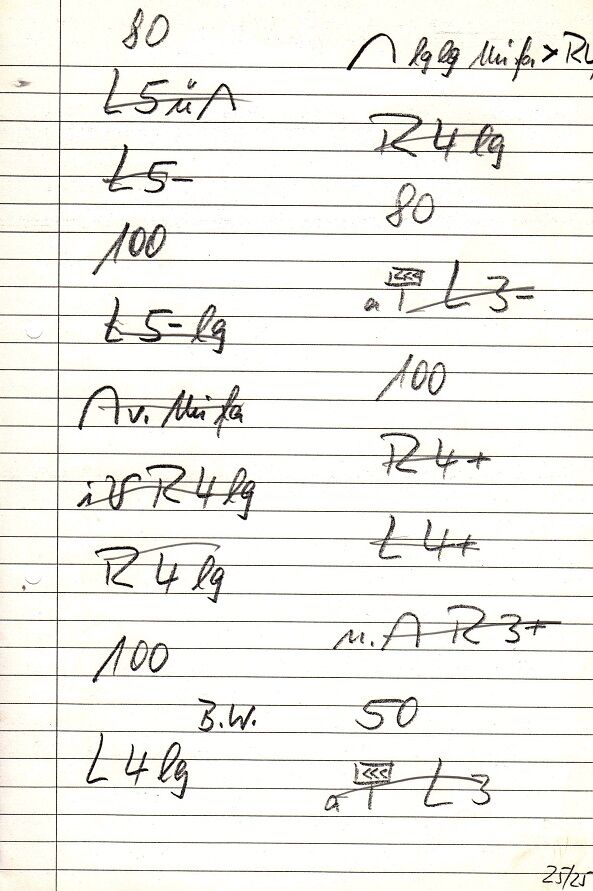 80
L5 ü ⋂
L5-
100
L5- lg
⋂ v.
R4 lg
R4 lg
100
B.W.
L4 lg
⋂ lg lg > R4
R4 lg
80
a <<< L3-
100
R4+
L4+
R3+
50
a <<< L3
25/25